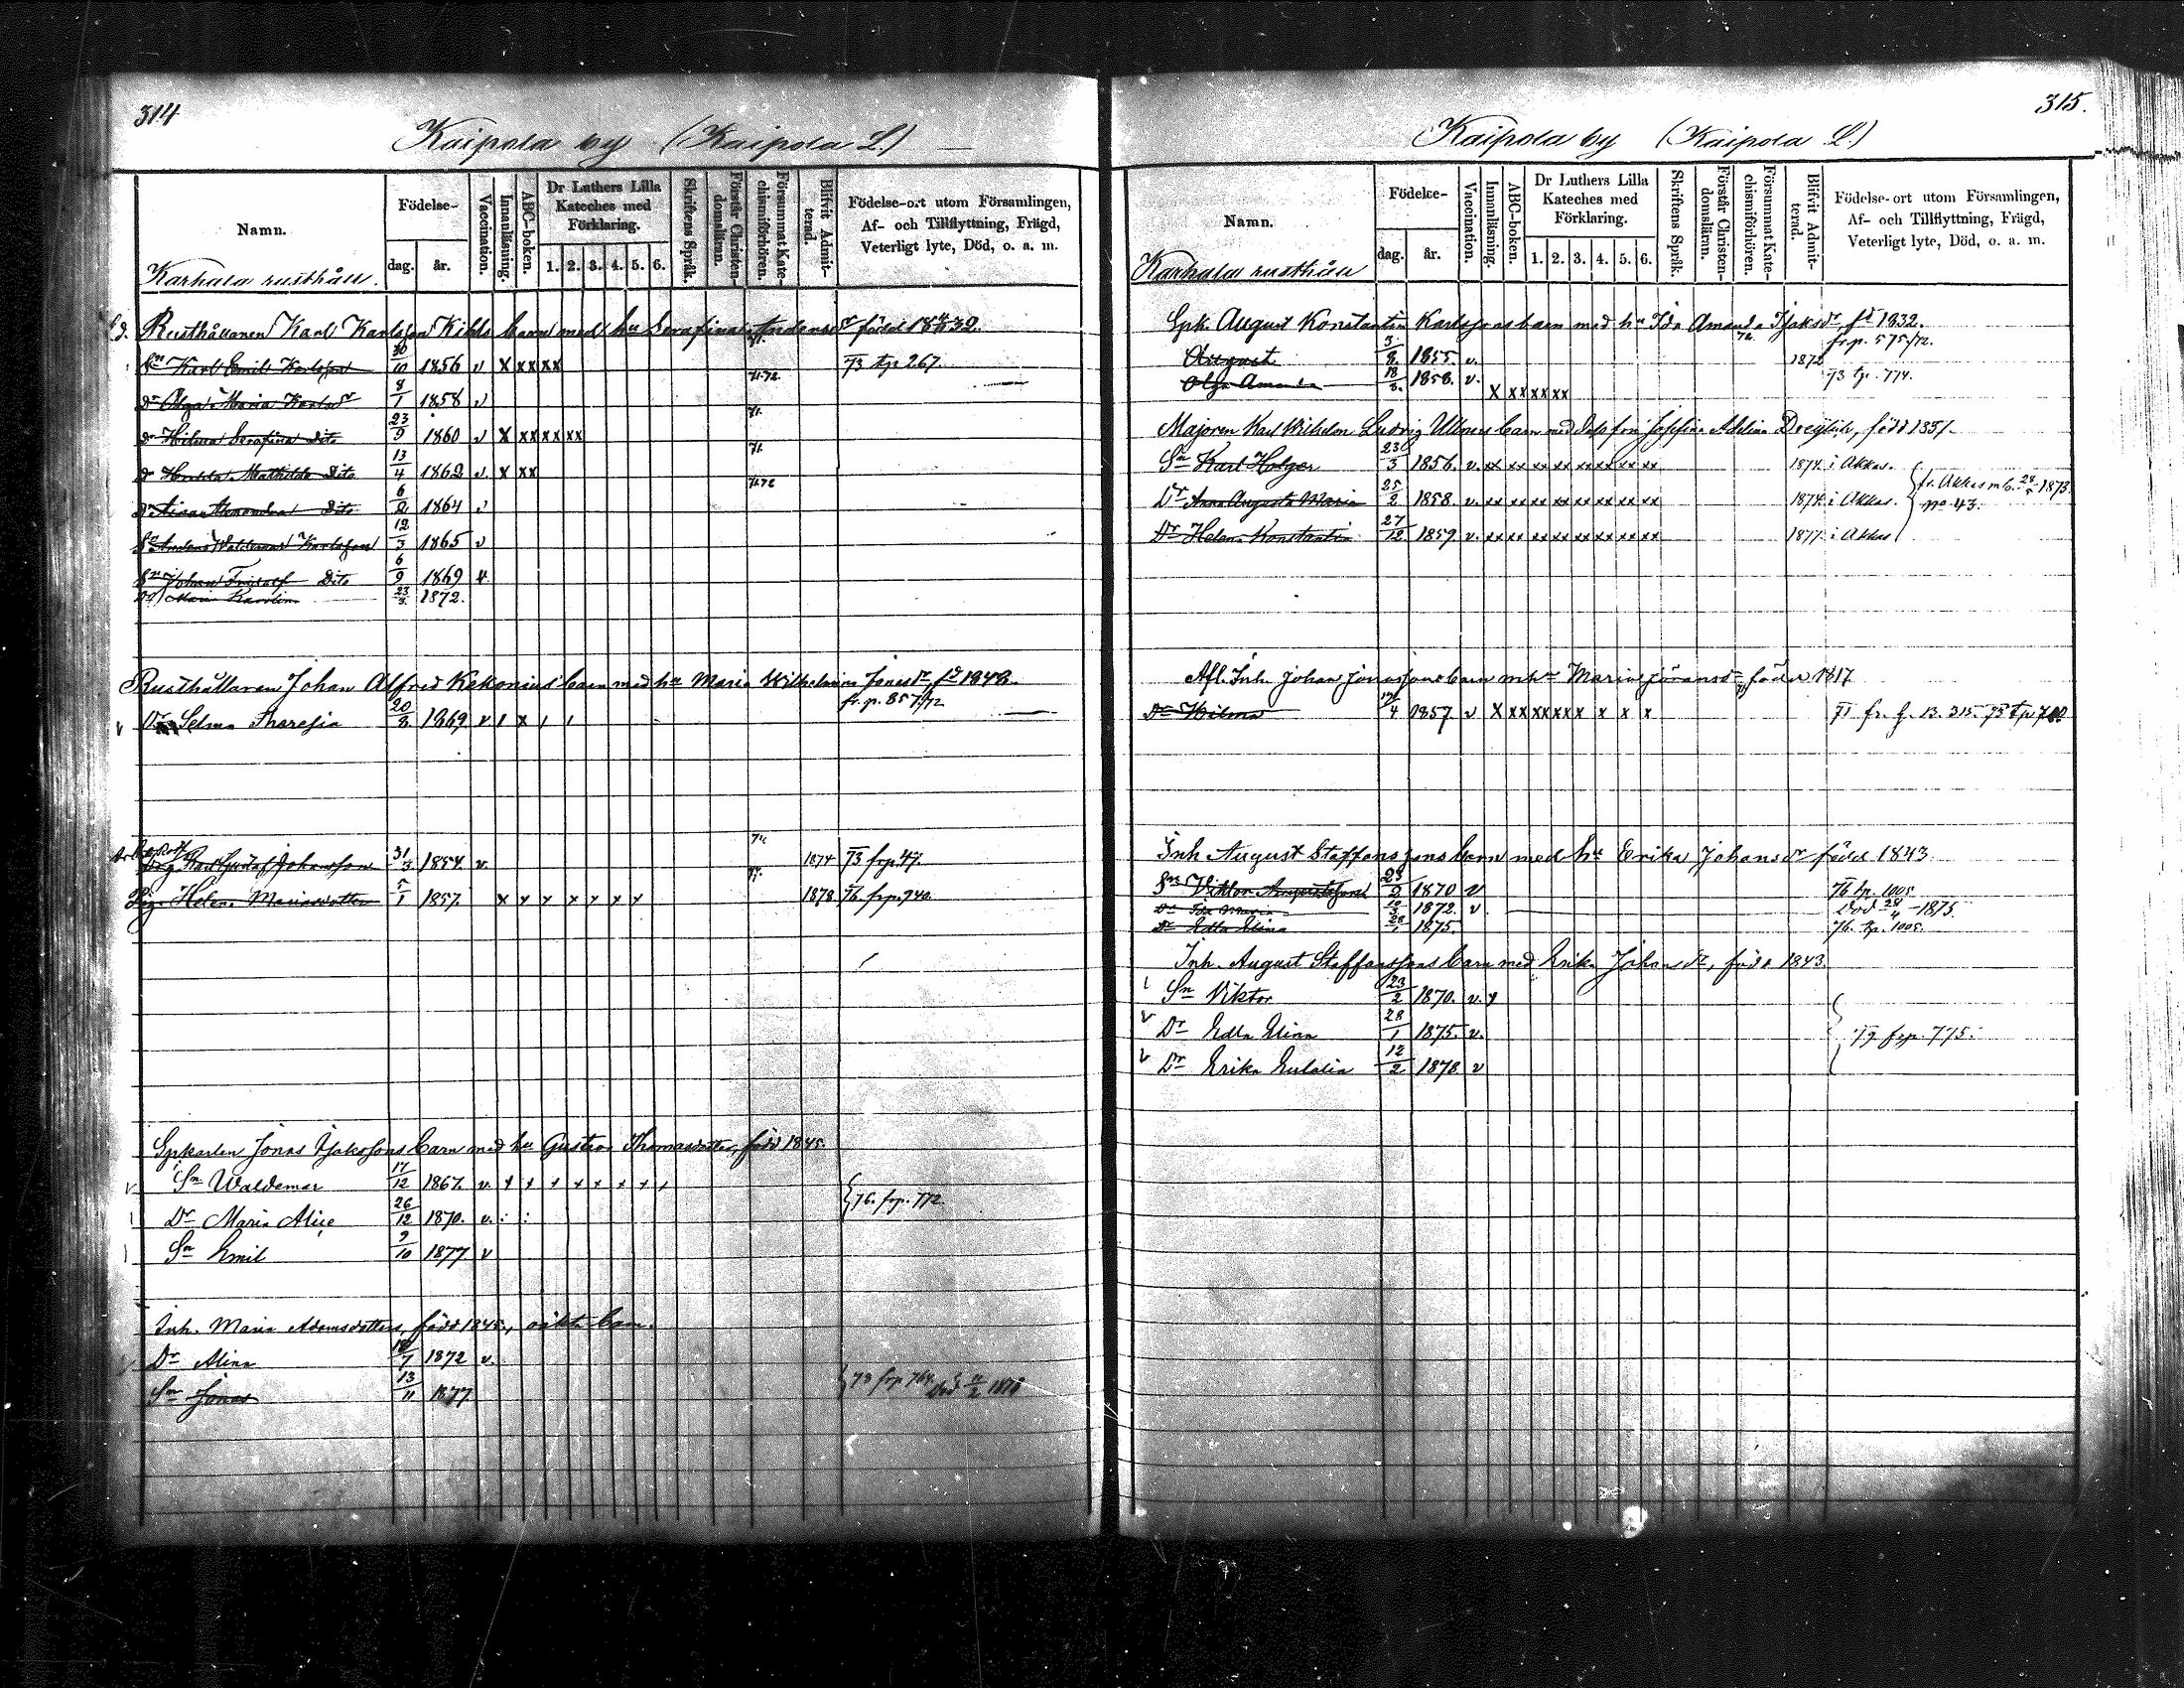 314
Kaipola by (Kaipola L.)
Namn.
Födelse-
dag.
år.
Vaccination.
Innanläsning.
ABC-boken.
Dr Luthers Lilla Kateches med Förklaring.
1. 2. 3. 4. 5. 6.
Skriftens Språk.
Förstår Christendomsläran.
Försummat Katechismiförhören.
Blifvit Admitterad.
Födelse-ort utom Församlingen, Af- och Tillflyttning, Frägd, Veterligt lyte, Död, o. a. m.
Karhala rusthåll.
Rusthållaren Karl Karlsson barn med hu Serafina född
Sn Karl Emil Karlsson 30/10 1856 v x xx xx 71. 73 tp 267.
Dr Olga Maria Karlsdr 8/1 1858 v 71.72.
Dr Hilma Serafina Dito 23/9 1860 v x xx xx xx 71.
Dr Mathilda Dito 13/4 1862 v. x xx 71.
Dr Dito 6/2 1864 71.72
Sn Anders Waldemar Karlsson 12/3 1865 v
Sn Johan Dito 6/9 1869 v.
Maria Karolina 23/3 1872.
Rusthållaren Johan Alfred Kekonius barn med hu Maria Wilhelmina Jonasdr fd 1848.
fr. p. 857/72
v Dr Selma Theresia 20/8 1869 v
Drg Karl Gustaf Johansson 31/3 1854. v. 74 1874 73 frp 47.
Pig. Helena Mariasdotter 5/1 1857. x x x x x x x 1878 76. frp. 740.
Spkarlen Jonas Isakssons barn med hu Gustava Thomasdotter, född 1845.
v Sn Waldemar 17/12 1867. v. x x x x x x x
Dr Maria Alice 26/12 1870. v.
76. frp. 772.
Sn Emil 9/10 1877 v
Inh. Maria Adamsdotters, född 1845, oäkta barn.
v Dr Alina 18/7 1872 v.
Sn Jonas 13/11 1877
315.
Kaipola by (Kaipola L.)
Namn.
Födelse-
dag.
år.
Vaccination.
Innanläsning.
ABC-boken.
Dr Luthers Lilla Kateches med Förklaring.
1. 2. 3. 4. 5. 6.
Skriftens Språk.
Förstår Christendomsläran.
Försummat Katechismiförhören.
Blifvit Admitterad.
Födelse-ort utom Församlingen, Af- och Tillflyttning, Frägd, Veterligt lyte, Död, o. a. m.
Karhala rusthåll
Spk. August Konstantin Karlssons barn med hu Ida Amanda Isaksdr, fd 1832.
fr p. 575/72.
August 3/8 1855 v. 1872
Olga Amanda 18/8. 1858. v. x xx xx xx 73 tp. 774.
Majoren Karl Wilhelm Ludvig barn med Josefina Adelina född 1831.
Sn Karl Holger 23/3 1856. v. xx xx xx xx xx xx xx xx 1874. i Akkas.
Dr Anna Augusta Maria 25/2 1858. v. xx xx xx xx xx xx xx xx 1874. i Akkas.
fr. Akkas mb. 1873 no 43.
Dr Helena Konstantia 27/12 1859 v. xx xx xx xx xx xx xx xx 1877. i Akkas
Afl. Inh. Johan Jönssons barn m hu Maria Jöransdr född 1817
Dr Hilma 1857. v x xx xx xx x x x x 71 fr. 315. 73 tp
Inh August Staffanssons barn med hu Erika Johansdr född 1843.
Sn Viktor 23/2 1870 v 76 tp. 1005.
Dr Ida Maria 1872. v Död 28/4 1875.
Dr Edla Elina 28/1 1875. 76. tp. 1005.
Inh. August Staffanssons barn med Erika Johansdr, född 1843.
Sn Viktor 23/2 1870. v. x
v Dr Edla Elina 28/1 1875. v.
79 frp. 775.
v Dr Erika Eulalia 12/2 1878 v